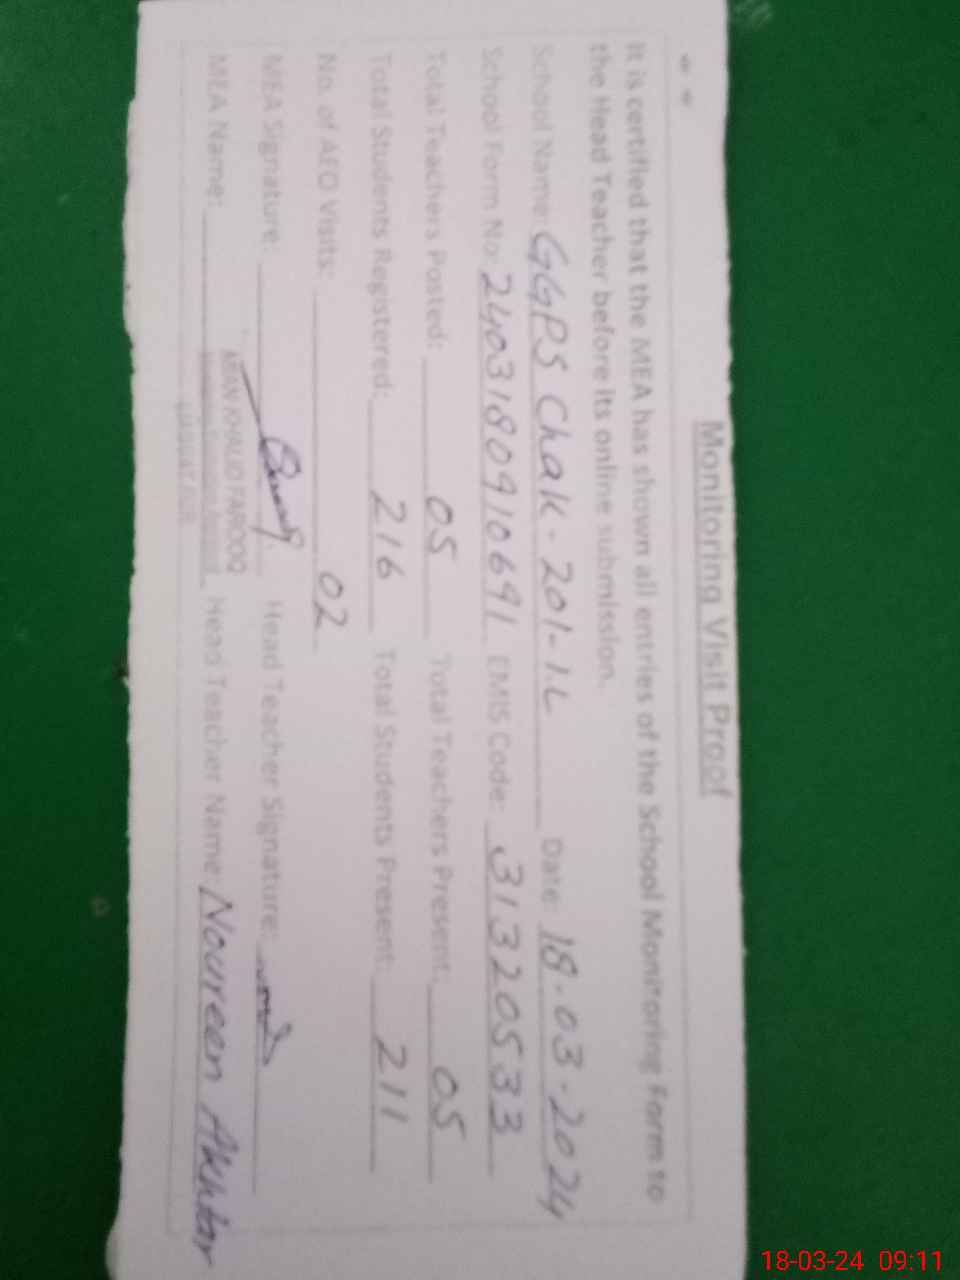 Monitoring Visit Proof
It is certified that the MEA has shown all entries of the School Monitoring Form to
the Head Teacher before its online submission.
School Name: GGPS Chak-201-1.L Date: 18-03-2024
School Form No: 2403180910691 EMIS Code: 31320533
Total Teachers Posted: 05 Total Teachers Present: 05
Total Students Registered: 216 Total Students Present: 211
No. of AEO Visits: 02
MEA Signature: Head Teacher Signature:
MEA Name: KHALID FAROOQ Head Teacher Name: Noureen Akhtar
18-03-24 09:11